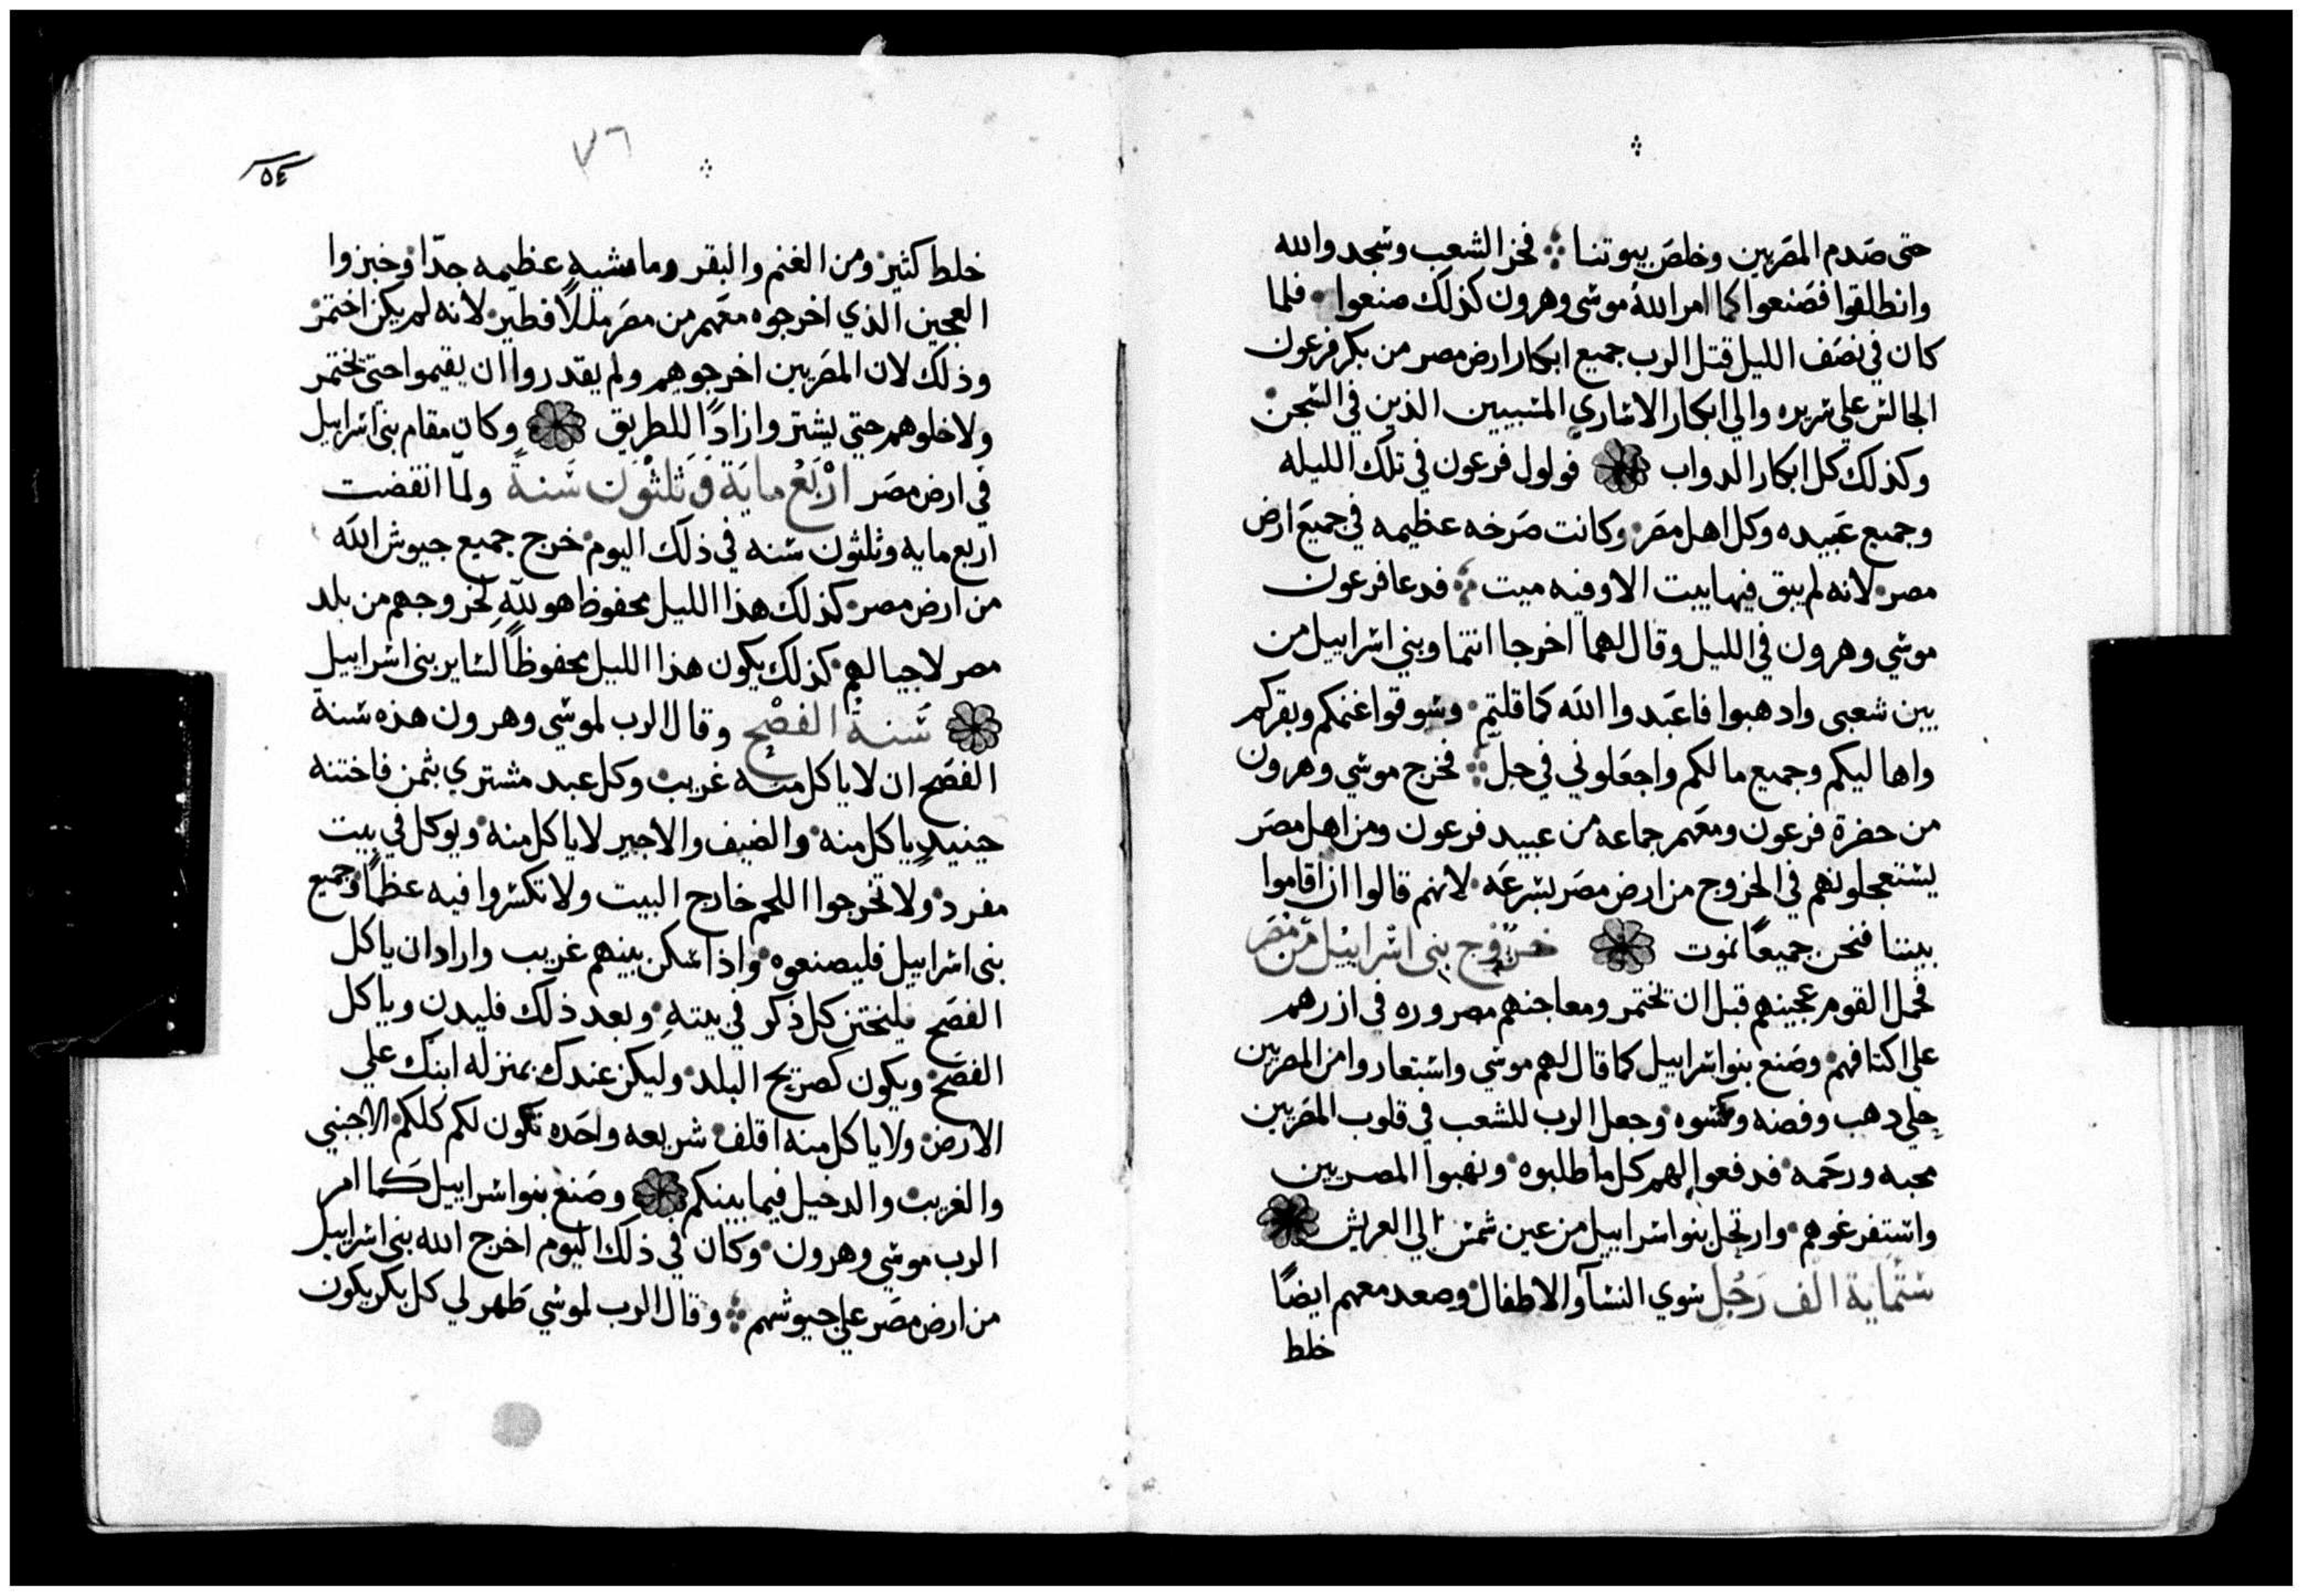 حتى صدم المصريين وخلص بيوتنا فخر الشعب وسجدوا لله
وانطلقوا فصنعوا كما امر الله موسى وهرون كذلك صنعوا فلما
كان في نصف الليل قتل الرب جميع ابكار ارض مصر من بكر فرعون
الجالس علي سريره والي ابكار الاسارى المسبيين الذين في السجن
وكذلك كل ابكار الدواب فولول فرعون في تلك الليله
وجميع عبيده وكل اهل مصر وكانت صرخه عظيمه في جميع ارض
مصر لانه لم يبق فيها بيت الا وفيه ميت فدعا فرعون
موسي وهرون في الليل وقال لهما اخرجا انتما وبني اسراييل من
بين شعبي وادهبوا فاعبدوا الله كما قلتم وسوقوا غنمكم وبقركم
واهاليكم وجميع مالكم واجعلوني في حل فخرج موسي وهرون
من حضرة فرعون ومعهم جماعه من عبيد فرعون ومن اهل مصر
يستعجلونهم في الخروج من ارض مصر بسرعه لانهم قالوا ان اقاموا
بيننا فنحن جميعًا نموت خروج بني اسراييل من مصر
فحمل القوم عجينهم قبل ان تختمر ومعاجنهم مصروره في ازرهم
على اكتافهم وصنع بنو اسراييل كما قال لهم موسي واستعاروا من المصريين
حلي دهب وفضه وكسوه وجعل الرب للشعب في قلوب المصريين
محبه ورحمه فدفعوا لهم كل ما طلبوه ونهبوا المصريين
واستفرغوهم وارتحل بنو اسراييل من عين شمس الي العريش
ستماية الف رجل سوي النسآ والاطفال وصعد معهم ايضًا
خلط
٧٦
٥٤
خلط كثير ومن الغنم والبقر وماشيه عظيمه جدّا وخبزوا
العجين الذي اخرجوه معهم من مصر مللًا فطير لانه لم يكن اختمر
وذلك لان المصريين اخرجوهم ولم يقدروا ان يقيموا حتى تختمر
ولا خلوهم حتي يشتروا زادًا للطريق وكان مقام بني اسراييل
في ارض مصر اربع ماية وثلثون سنة ولمّا انقضت
اربع مايه وثلثون سنه في ذلك اليوم خرج جميع جيوش الله
من ارض مصر كذلك هذا الليل محفوظ هو للّه لخروجهم من بلد
مصر لاجيالهم كذلك يكون هذا الليل محفوظًا لساير بني اسراييل
سنة الفصح وقال الرب لموسي وهرون هذه سنة
الفصح ان لا ياكل منه غريب وكل عبد مشتري بثمن فاختنه
حينيدٍ ياكل منه والضيف والاجير لا ياكل منه ويوكل في بيت
مفرد ولا تخرجوا اللحم خارج البيت ولا تكسروا فيه عظمًا وجميع
بني اسراييل فليصنعوه واذا سكن بينهم غريب واراد ان ياكل
الفصح فليختن كل ذكر في بيته وبعد ذلك فليدن وياكل
الفصح ويكون كصريح البلد وليكن عندك بمنزله ابنك علي
الارض ولا ياكل منه اقلف شريعه واحده تكون لكم كلكم الاجنبي
والغريب والدخيل فيما بينكم وصنع بنو اسراييل كما امر
الرب موسي وهرون وكان في ذلك اليوم اخرج الله بني اسراييل
من ارض مصر علي جيوشهم وقال الرب لموسي طهر لي كل بكر يكون